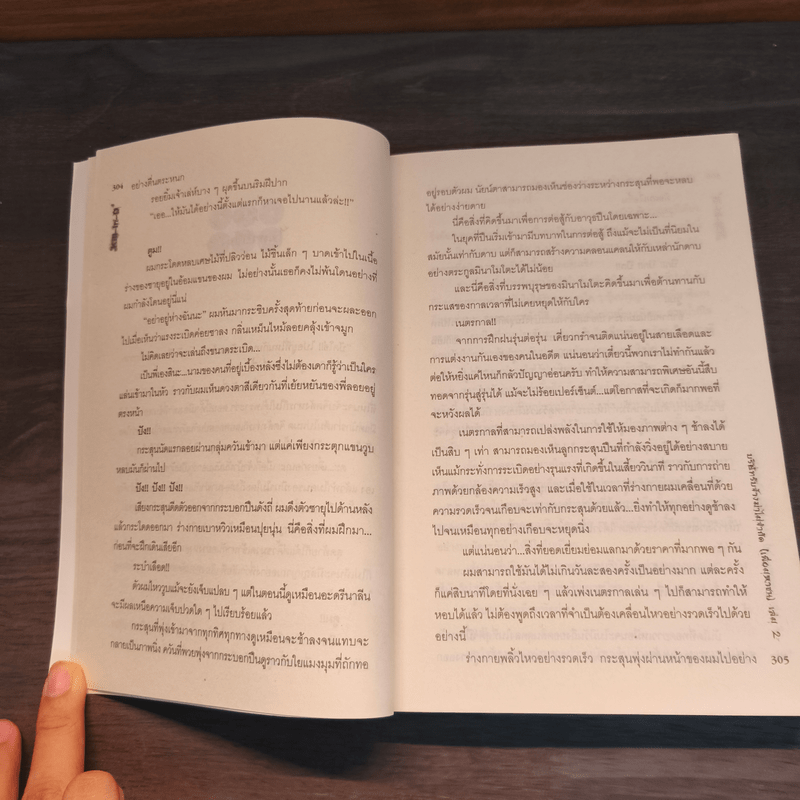 304 อย่างตื่นตระหนก
รอยยิ้มเจ้าเล่ห์บาง ๆ ผุดขึ้นบนริมฝีปาก
“เออ...ให้มันได้อย่างนี้ตั้งแต่แรกก็หาเจอไปนานแล้วล่ะ!!”
ตูม!!
ผมกระโดดหลบเศษไม้ที่ปลิวว่อน ไม้ชิ้นเล็ก ๆ บาดเข้าไปในเนื้อ
ร่างของชายุอยู่ในอ้อมแขนของผม ไม่อย่างนั้นเธอก็คงไม่พ้นโดนอย่างที่
ผมกำลังโดนอยู่นี่แน่
“อย่าอยู่ห่างฉันนะ” ผมหันมากระซิบครั้งสุดท้ายก่อนจะผละออก
ไปเมื่อเห็นว่าแรงระเบิดค่อยซาลง กลิ่นเหม็นไหม้ลอยคลุ้งเข้าจมูก
ไม่คิดเลยว่าจะเล่นถึงขนาดระเบิด...
เป็นพี่เองสินะ...นามของคนที่อยู่เบื้องหลังซึ่งไม่ต้องเดาก็รู้ว่าเป็นใคร
แล่นเข้ามาในหัว ราวกับผมเห็นดวงตาสีเดียวกันที่เย้ยหยันของพี่ลอยอยู่
ตรงหน้า
ปัง!!
กระสุนนัดแรกลอยผ่านกลุ่มควันเข้ามา แต่แค่เพียงกระตุกแขนวูบ
หลบมันก็ผ่านไป
ปัง!! ปัง!! ปัง!!
เสียงกระสุนดีดตัวออกจากกระบอกปืนดังถี่ ผมดึงตัวชายุไปด้านหลัง
แล้วกระโดดออกมา ร่างกายเบาหวิวเหมือนปุยนุ่น นี่คือสิ่งที่ผมฝึกมา...
ก่อนที่จะฝึกเดินเสียอีก
ระบำเลือด!!
ตัวผมไหววูบแม้จะยังเจ็บแปลบ ๆ แต่ในตอนนี้ดูเหมือนอะดรีนาลีน
จะมีผลเหนือความเจ็บปวดใด ๆ ไปเรียบร้อยแล้ว
กระสุนที่พุ่งเข้ามาจากทุกทิศทุกทางดูเหมือนจะช้าลงจนแทบจะ
กลายเป็นภาพนิ่ง ควันที่พวยพุ่งจากกระบอกปืนดูราวกับใยแมงมุมที่ถักทอ
อยู่รอบตัวผม นัยน์ตาสามารถมองเห็นช่องว่างระหว่างกระสุนที่พอจะหลบ
ได้อย่างง่ายดาย
นี่คือสิ่งที่คิดขึ้นมาเพื่อการต่อสู้กับอาวุธปืนโดยเฉพาะ...
ในยุคที่ปืนเริ่มเข้ามามีบทบาทในการต่อสู้ ถึงแม้จะไม่เป็นที่นิยมใน
สมัยนั้นเท่ากับดาบ แต่ก็สามารถสร้างความคลอนแคลนให้กับเหล่านักดาบ
อย่างตระกูลมินาโมโตะได้ไม่น้อย
และนี่คือสิ่งที่บรรพบุรุษของมินาโมโตะคิดขึ้นมาเพื่อต้านทานกับ
กระแสของกาลเวลาที่ไม่เคยหยุดให้กับใคร
เนตรกาล!!
จากการฝึกฝนรุ่นต่อรุ่น เคี่ยวกรำจนติดแน่นอยู่ในสายเลือดและ
การแต่งงานกันเองของคนในอดีต แน่นอนว่าเดี๋ยวนี้พวกเราไม่ทำกันแล้ว
ต่อให้หยิ่งแค่ไหนก็กลัวปัญญาอ่อนครับ ทำให้ความสามารถพิเศษอันนี้สืบ
ทอดจากรุ่นสู่รุ่นได้ แม้จะไม่ร้อยเปอร์เซ็นต์...แต่โอกาสที่จะเกิดก็มากพอที่
จะหวังผลได้
เนตรกาลที่สามารถเปล่งพลังในการใช้ให้มองภาพต่าง ๆ ช้าลงได้
เป็นสิบ ๆ เท่า สามารถมองเห็นลูกกระสุนปืนที่กำลังวิ่งอยู่ได้อย่างสบาย
เห็นแม้กระทั่งการระเบิดอย่างรุนแรงที่เกิดขึ้นในเสี้ยววินาที ราวกับการถ่าย
ภาพด้วยกล้องความเร็วสูง และเมื่อใช้ในเวลาที่ร่างกายผมเคลื่อนที่ด้วย
ความรวดเร็วจนเกือบจะเท่ากับกระสุนด้วยแล้ว...ยิ่งทำให้ทุกอย่างดูช้าลง
ไปจนเหมือนทุกอย่างเกือบจะหยุดนิ่ง
แต่แน่นอนว่า...สิ่งที่ยอดเยี่ยมย่อมแลกมาด้วยราคาที่มากพอ ๆ กัน
ผมสามารถใช้มันได้ไม่เกินวันละสองครั้งเป็นอย่างมาก แต่ละครั้ง
ก็แค่สิบนาทีโดยที่นั่งเฉย ๆ แล้วเพ่งเนตรกาลเล่น ๆ ไปก็สามารถทำให้
หอบได้แล้ว ไม่ต้องพูดถึงเวลาที่จำเป็นต้องเคลื่อนไหวอย่างรวดเร็วไปด้วย
อย่างนี้
ร่างกายพลิ้วไหวอย่างรวดเร็ว กระสุนพุ่งผ่านหน้าของผมไปอย่าง 305